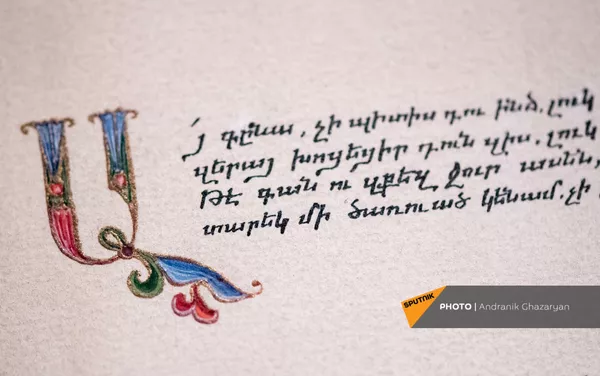 Ա՛յ գընաս, չի պիտիս դու ինձ. լուկ
վերայ խոցեցիր դուն զիս. լուկ
Թէ գան ու զքեզ ջուր ասեն,
տարեկ մի ծառուած կենամ. չի
SPUTNIK PHOTO | Andranik Ghazaryan